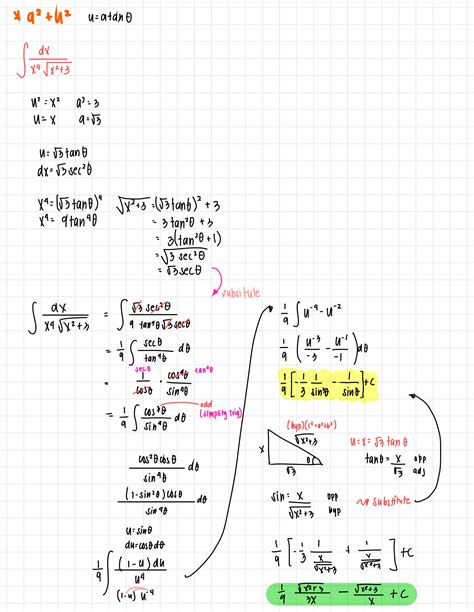 * a² + u²   u = a tan θ
∫ dx / x⁴√x²+3
u² = x²   a² = 3
u = x   a = √3
u = √3 tan θ
dx = √3 sec² θ
x⁴ = (√3 tan θ)⁴
x⁴ = 9 tan⁴ θ
√x²+3 = (√3 tan θ)² + 3
= 3 tan² θ + 3
= 3(tan² θ + 1)
= √3 sec² θ
= √3 sec θ
substitute
∫ dx / x⁴√x²+3 = ∫ √3 sec² θ / 9 tan⁴ θ √3 sec θ
= 1/9 ∫ sec θ / tan⁴ θ dθ
sec θ   tan⁴ θ
= 1/cos θ · cos⁴ θ / sin⁴ θ
odd
= 1/9 ∫ cos³ θ / sin⁴ θ dθ (simplify trig)
cos² θ cos θ / sin⁴ θ dθ
(1 - sin² θ) cos θ / sin⁴ θ dθ
u = sin θ
du = cos θ dθ
1/9 ∫ (1 - u) du / u⁴
(1 - u) u⁻⁴
1/9 ∫ u⁻⁴ - u⁻²
1/9 ( u⁻³/-3 - u⁻¹/-1 ) dθ
1/9 [ -1/3 1/sin³ θ - 1/sin θ ] + C
(hyp) (c² = a² + b²)
√x²+3
x
θ
√3
u = x = √3 tan θ
tan θ = x/√3 opp/adj
sin = x/√x²+3 opp/hyp
substitute
1/9 [ -1/3 1/(x/√x²+3) + 1/(x/√x²+3) ] + C
1/9 √x²+3/3x - √x²+3/x + C